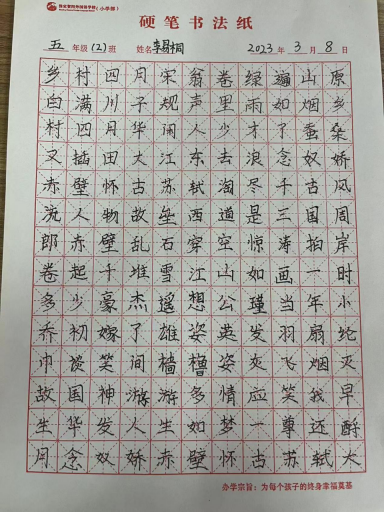 (小学部)
硬笔书法纸
五 年级 (2) 班 姓名 李易桐 2023 年 3 月 8 日
乡村四月宋翁卷绿遍山原
白满川子规声里雨如烟乡
村四月华闲人少才了蚕桑
又插田大江东去浪念奴娇
赤壁怀古苏轼淘尽千古风
流人物故垒西道是三国周
郎赤壁乱石穿空惊涛拍岸
卷起千堆雪江山如画一时
多少豪杰遥想公瑾当年小
乔初嫁了雄姿英发羽扇纶
巾谈笑间樯橹姿灰飞烟灭
故国神游游多情应笑我早
生华发人生如梦一尊还酹
月念奴娇赤壁怀古苏轼大
办学宗旨：为每个孩子的终身幸福奠基